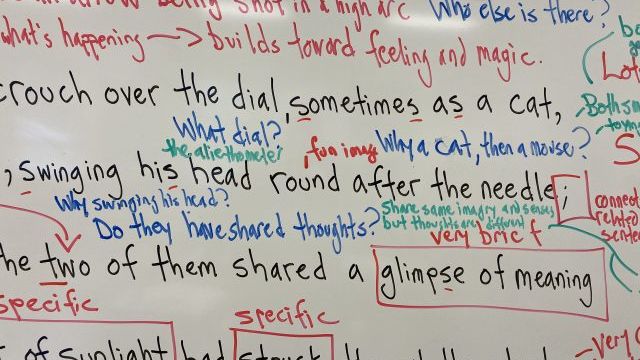 arrow being shot in a high arc Who else is there?
what's happening → builds toward feeling and magic.
crouch over the dial, sometimes as a cat,
What dial? Why a cat, then a mouse?
the alethiometer fun image
, swinging his head round after the needle;
Why swinging his head?
Do they have shared thoughts? Share same imagry and senses
but thoughts are different
very brief
the two of them shared a glimpse of meaning
specific specific
of sunlight had struck